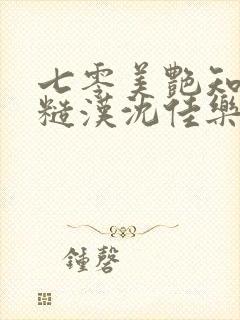 七零美艷知
糙漢沈佳樂
鍾磬